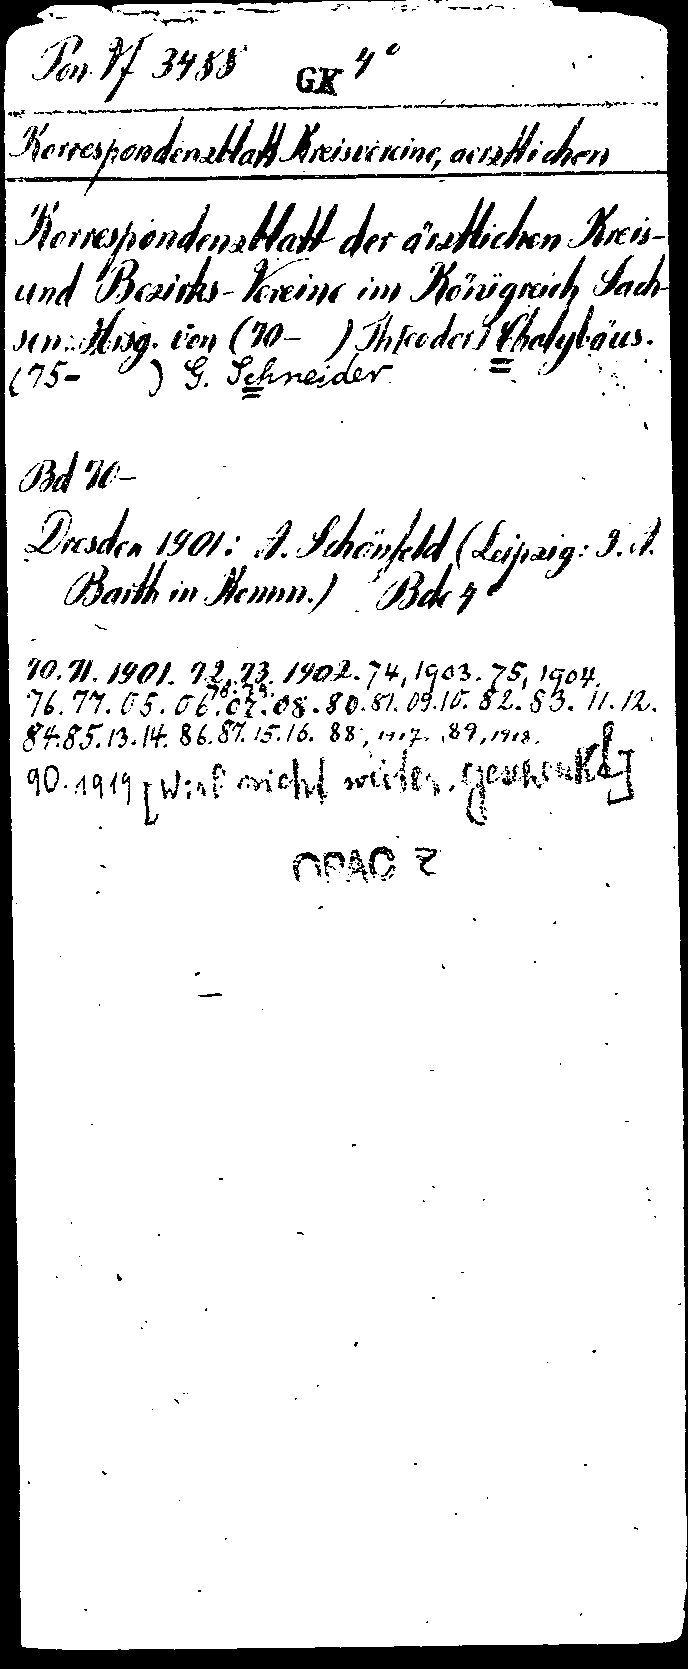 Pon Vf 3488 GK 4°
Korrespondenzblatt Kreisvereine, aerztlichen
Korrespondenzblatt der ärztlichen Kreis-
und Bezirks-Vereine im Königreich Sach-
sen. Hrsg. von (70- ) Th[eodor] Chalybäus.
(75- ) G. Schneider
Bd 70-
Dresden 1901: A. Schönfeld (Leipzig: J. A.
Barth in Komm.) Bde 4°
70.71. 1901. 72.73. 1902. 74, 1903. 75, 1904.
76.77. 05. 06. 78.79. 07. 08. 80. 81. 09. 10. 82. 83. 11. 12.
84.85. 13. 14. 86. 87. 15. 16. 88, 1917. 89, 1918.
90. 1919 [Wird nicht weiter geschenkt]
OPAC Z